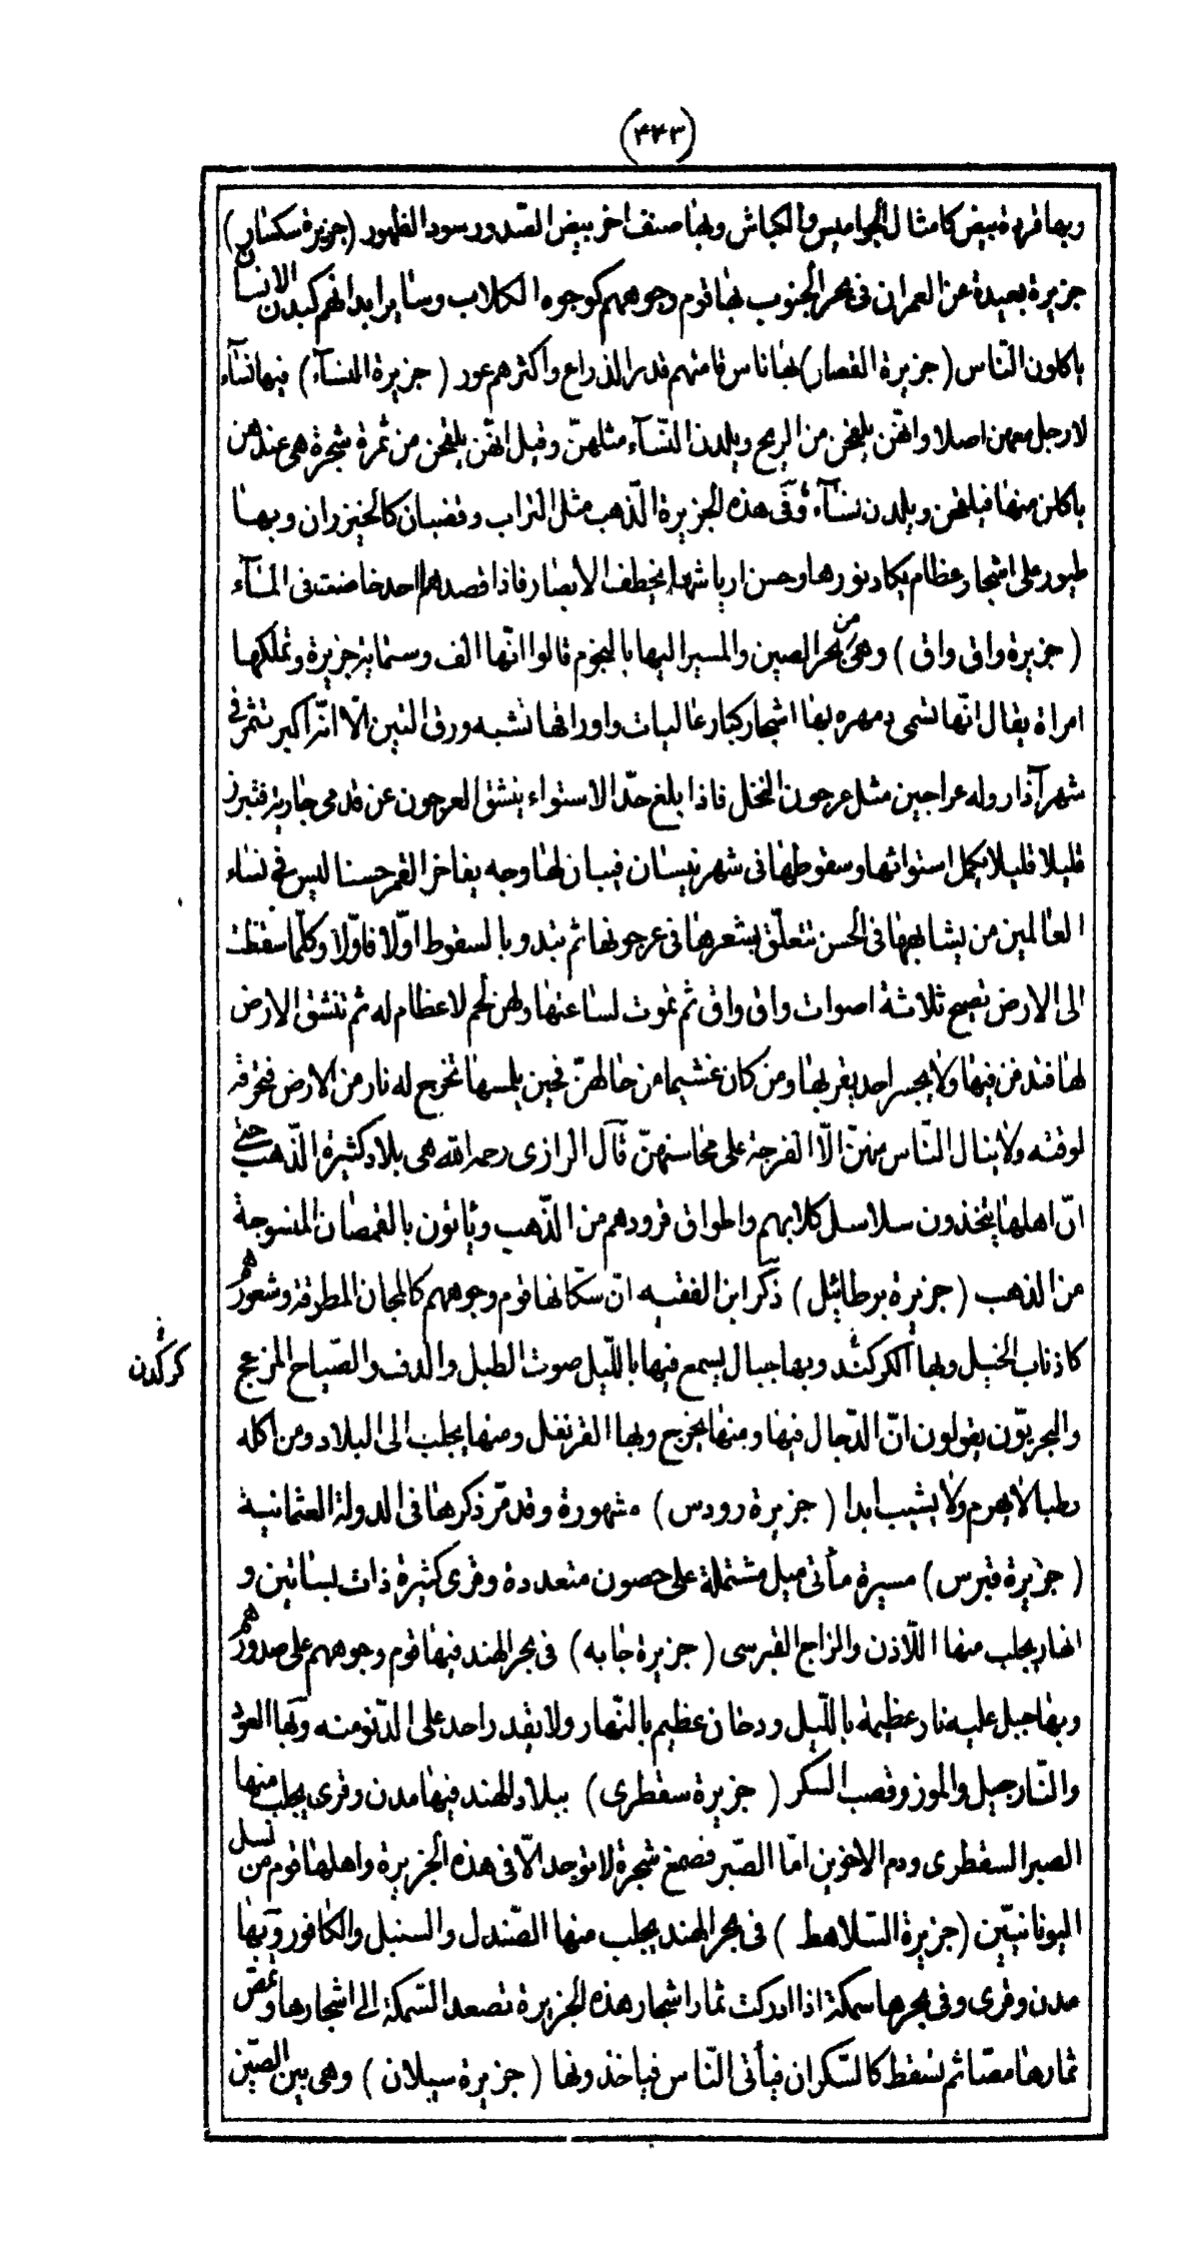 (٤٤٣)
وبها قردة بيض كامثال الجواميس والكباش وبها صنف اخر بيض الصّدور سود الظهور (جزيرة سكسار)
جزيرة بعيدة عن العمران فى بحر الجنوب بها قوم وجوههم كوجوه الكلاب وساير ابدانهم كبدن الانسان
ياكلون النّاس (جزيرة القصار) بها ناس قامتهم قدر الذراع واكثرهم عور (جزيرة النسآء) فيها نسآء
لا رجل معهن اصلا وانّهن يلقحن من الريح ويلدن النّسآء مثلهنّ وقيل انّهن يلقحن من ثمرة شجرة هى عندهن
ياكلن منها فيلقحن ويلدن نسآء وفى هذه الجزيرة الذّهب مثل التراب وقضبان كالخيزران وبها
طيور على اشجار عظام يكاد نورها وحسن ارياشها يخطف الابصار فاذا قصدهم احد خاضت فى المآء
(جزيرة واق واق) وهى من بحر الصين والمسير اليها بالنجوم قالوا انّها الف وستماية جزيرة وتملكها
امراة يقال انّها تسمى دمهره بها اشجار كبار عاليات واوراقها تشبه ورق التين الّا انّه اكبر تثمر فى
شهر آذار وله عراجين مثل عرجون النخل فاذا بلغ حدّ الاستواء ينشق العرجون عن قدمى جارية فتبرز
قليلا قليلا يكمل استوائها وسقوطها فى شهر نيسان فيبان لها وجه يفاخر القمر حسنا ليس فى نساء
العالمين من يشابهها فى الحسن تتعلّق بشعرها فى عرجونها ثم تبدو بالسقوط اوّلا فاوّلا وكلّما سقطت
الى الارض تصيح ثلاثة اصوات واق واق ثم تموت لساعتها ولهن لحم لا عظام له ثم تنشق الارض
لها فتدفن فيها ولا يجسر احد يقربها ومن كان غشيما من حالهنّ فحين يلمسها تخرج له نار من الارض فتحرقه
لوقته ولا ينال النّاس منهنّ الّا الفرجة على محاسنهنّ قال الرازى رحمه الله هى بلاد كثيرة الذّهب حتى
انّ اهلها يتخذون سلاسل كلابهم واطواق قرودهم من الذّهب وياتون بالقمصان المنسوجة
من الذهب (جزيرة برطائيل) ذكر ابن الفقيه انّ سكّانها قوم وجوههم كالمجان المطرقة وشعورهم
كاذناب الخيل وبها الكركند وبها جبال يسمع فيها بالليل صوت الطبل والدف والصّياح المزعج
كركدن
والبحريّون يقولون انّ الدّجال فيها ومنها يخرج وبها القرنفل ومنها يجلب الى البلاد ومن اكله
رطبا لا يهرم ولا يشيب ابدا (جزيرة رودس) مشهورة وقد مرّ ذكرها فى الدولة العثمانية
(جزيرة قبرس) مسيرة مأتى ميل مشتملة على حصون متعددة وقرى كثيرة ذات بساتين و
انهار يجلب منها اللّاذن والزاج القبرسى (جزيرة جابه) فى بحر الهند فيها قوم وجوههم على صدورهم
وبها جبل عليه نار عظيمة بالليل ودخان عظيم بالنّهار ولا يقدر احد على الدّنو منه وبها العود
والنّارجيل والموز وقصب السكر (جزيرة سقطرى) ببلاد الهند فيها مدن وقرى يجلب منها
الصبر السقطرى ودم الاخوين امّا الصّبر فصمغ شجرة لا توجد الّا فى هذه الجزيرة واهلها قوم من نسل
اليونانيّين (جزيرة السّلاهط) فى بحر الهند يجلب منها الصّندل والسنبل والكافور وبها
مدن وقرى وفى بحرها سمكة اذا ادركت ثمار اشجار هذه الجزيرة تصعد السّمكة الى اشجارها وتمصّ
ثمارها مصّا ثم تسقط كالسّكران فيأتى النّاس فياخذونها (جزيرة سيلان) وهى بين الصّين